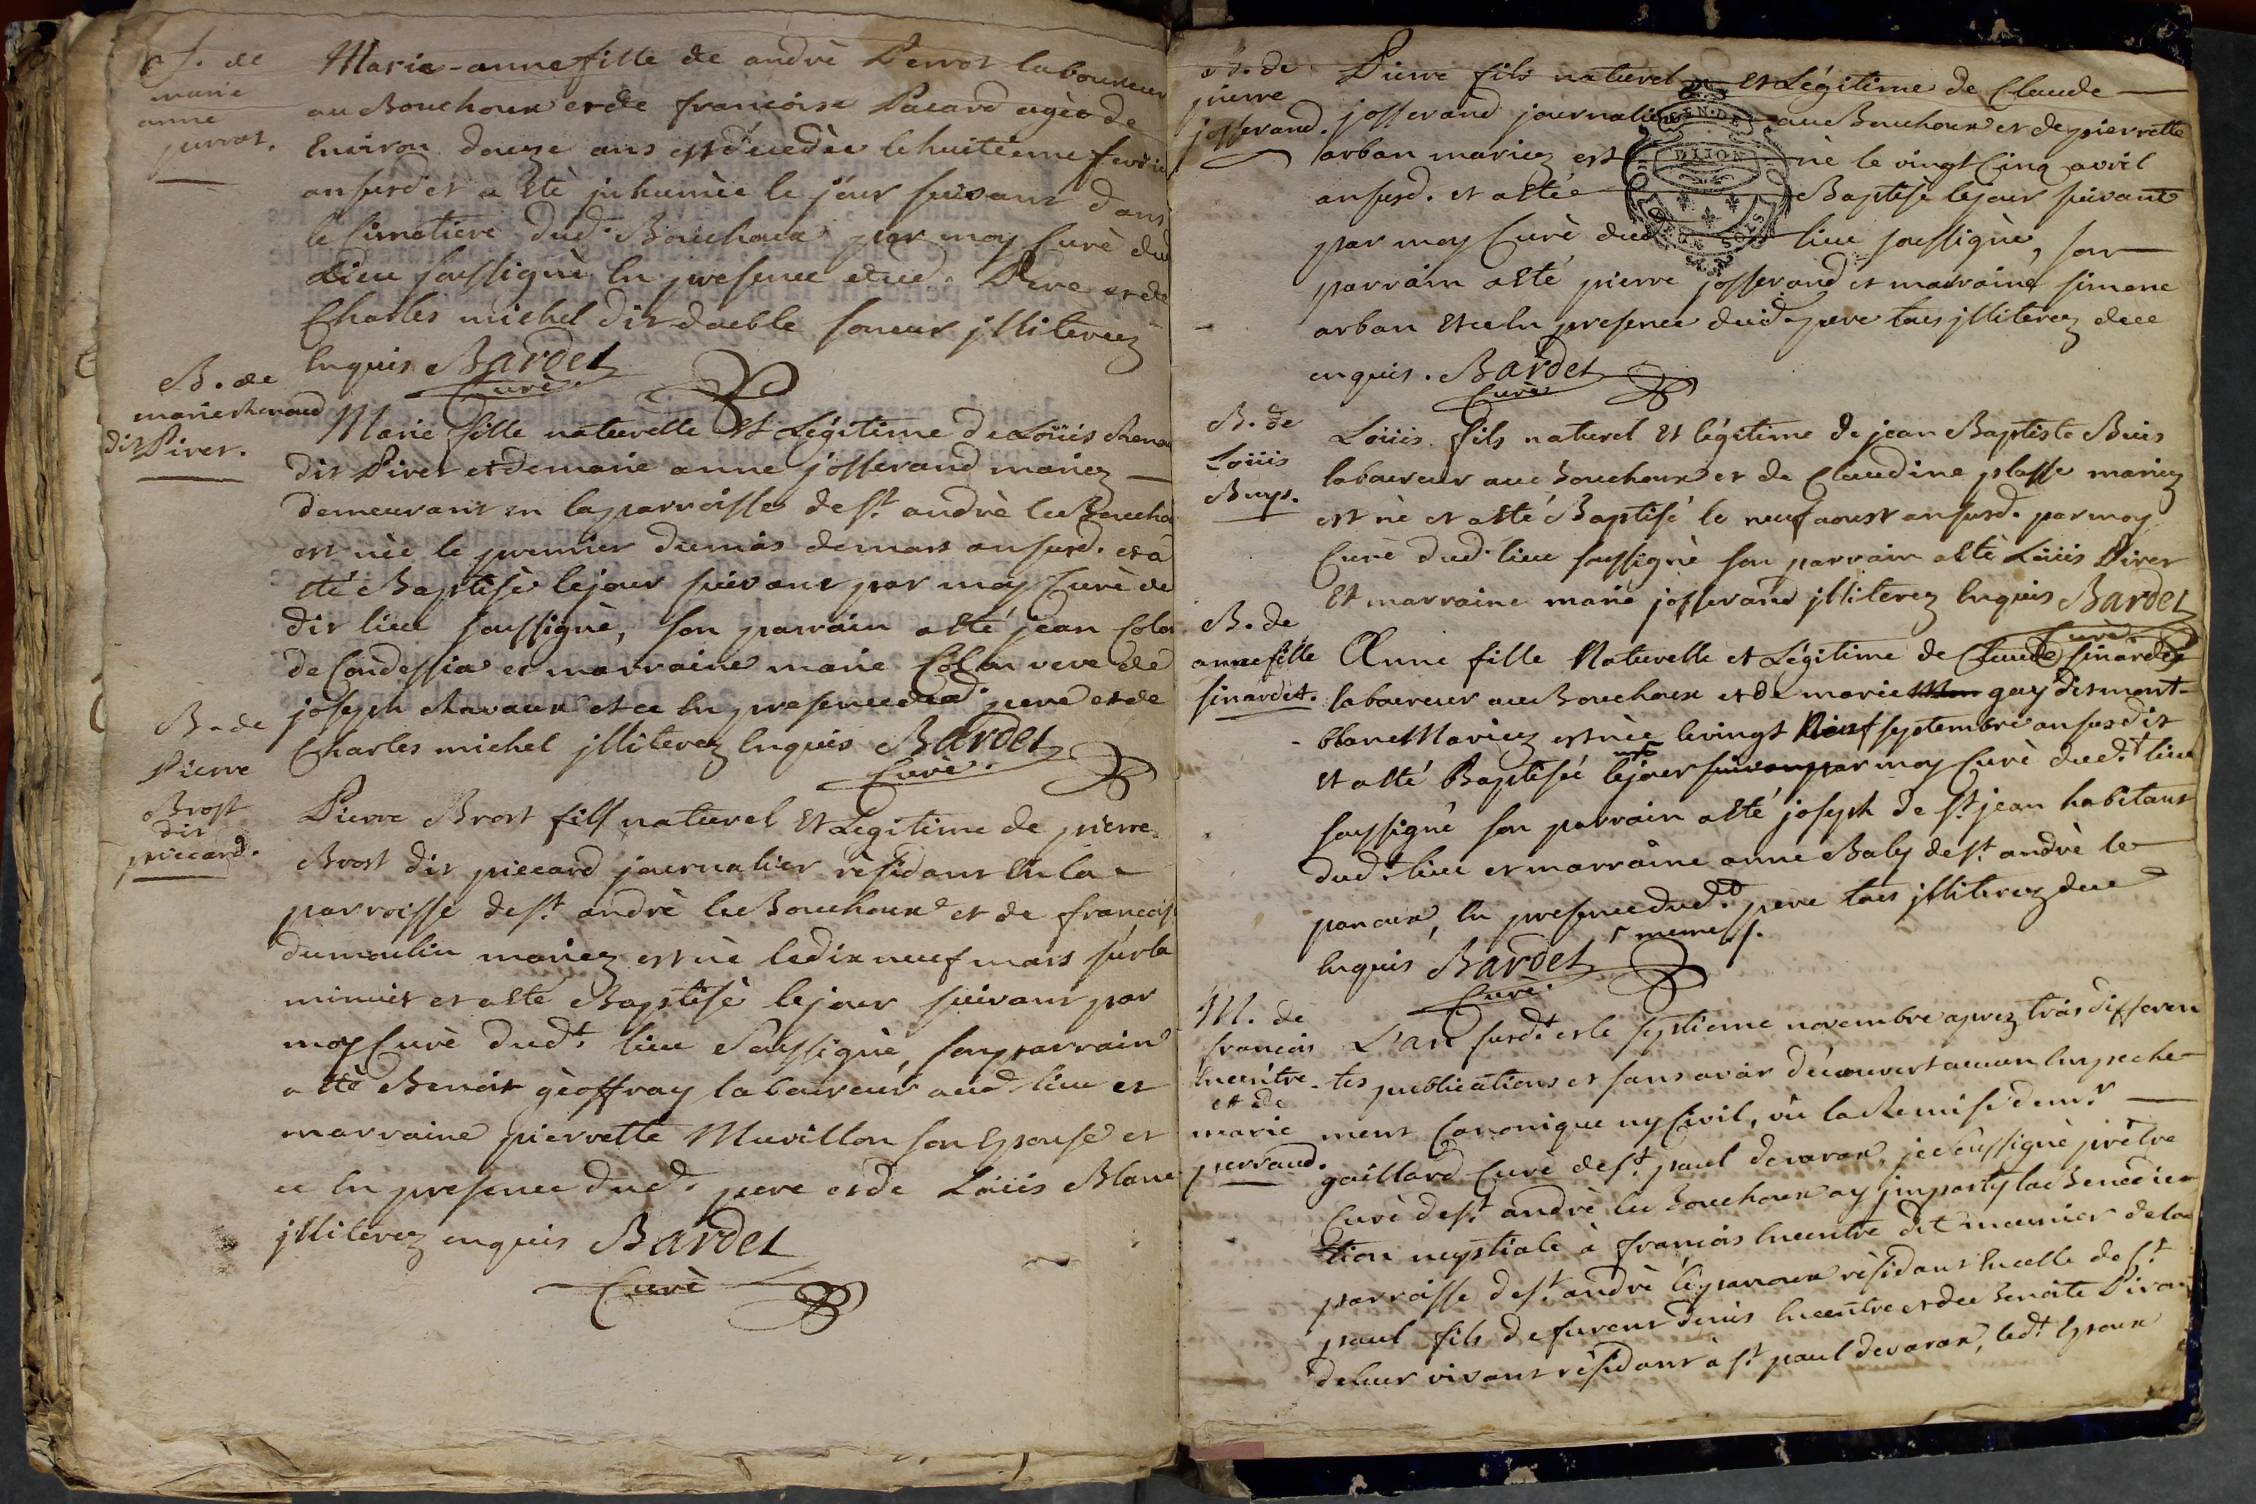 S. de
marie
anne
perrot.
Marie-anne fille de andrè Perrot laboureur
au Bouchoux et de francoise Pacard agée de
Environ douze ans est decedèe le huitieme fevrie
an susd et a etè inhumèe le jour suivant dans
le Cimetiere dud. Bouchoux par moy Curè dud
Lieu soussignè En presence dud. Pere et de
Charles michel dit daeble soneur jlliterez
Enquis Bardet
Curè.
B. de
marie chenaud
dit Piret.
Marie fille naturelle Et Légitime de Loüis chena
dit Piret et de marie anne josserand mariez
demeurant en la parroisse de st. andrè le Boucho
est nèe le premier du mois de mars an susd. et à
etè Baptisèe le jour suivant par moy Curè de
dit lieu soussignè, son parrain a Eté jean Colon
de Condessia et marraine marie Colon veve de
joseph chavaux et ce En presence dud. pere et de
Charles michel jlliterez Enquis Bardet
Curè.
B. de
Pierre
Brost
dit
piccard.
Pierre Brost fils naturel Et Légitime de pierre
Brost dit piccard journalier rèsidant En la
parroisse de st. andrè le Bouchoux et de francois
dumoulin mariez est nè le dix neuf mars sur la
minuit et a Eté Baptisè le jour suivant par
moy Curè dud. lieu Soussignè, son parrain
a Etè Benoit gèoffray laboureur aud lieu et
marraine pierrette Muvillon son Epouse et
ce En presence dud. pere et de Loüis Blanc
jlliterez enquis Bardet
Curè
B. de
pierre
josserand.
Pierre fils naturel Et Légitime de Claude
josserand journalier au Bouchoux et de pierrette
arban mariez est nè le vingt Cinq avril
an susd. et a Eté Baptisè le jour suivant
par moy Curè dud lieu soussignè, son
parrain a Eté pierre josserand et marraine simone
arban et ce En presence dud. pere tous jlliterez de ce
enquis. Bardet
Curè
GEN. DE
DIJON
DEUX SOLS
B. de
Loüis
Buys.
Loüis fils naturel Et légitime de jean Baptiste Buis
laboureur au Bouchoux et de Claudine plasse mariez
est nè et a Eté Baptisé le neuf aoust an susd. par moy
Curè dud. lieu soussignè son parrain a Etè Loüis Piret
Et marraine marie josserand jlliterez Enquis Bardet
Curè
B. de
anne fille
sinardet.
Anne fille Naturelle et Légitime de Claude sinardet
laboureur au Bouchoux et de marie gay dit mont-
blanc Mariez est nèe le vingt Neuf septembre an susdit
et a Eté Baptisée le jour par moy Curè dud.t lieu
soussigné son parrain a Eté joseph de st. jean habitant
dud.t lieu et marraine anne Baly de st. andrè le
panoux, En presence dud.t pere tous jlliterez de ce
Enquis Bardet
Curè.
M. de
francois
lucentre
et de
marie
perraud.
L'an susd.t et le septieme novembre aprez trois differen
tes publications et sans avoir découvert aucun Empeche
ment Canonique ny Civil, vü la Remise de mr.
gaillard Curè de st. paul de varax, je soussignè prêtre
Curè de st. andrè le Bouchoux ay imparty la Benédic
tion nuptiale à francois lucentre dit meunier de la
parroisse de st. andrè le panoux rèsidant En celle de st.
paul fils de furent denis lucentre et de Benoite Piron
de leur vivant rèsidant à st. paul de varax, led.t Epoux